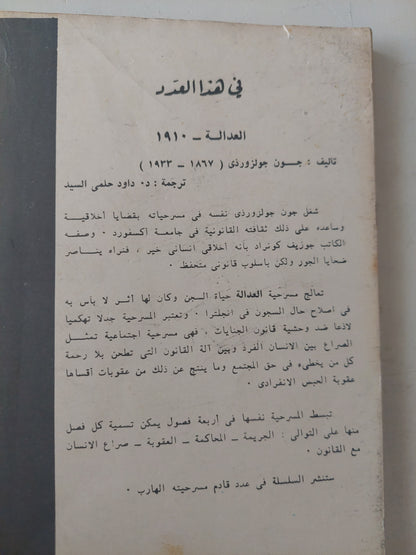 في هذا العدد
العدالة ــ ١٩١٠
تاليف : جـــون جولزورذى ( ١٨٦٧ ــ ١٩٣٣ )
ترجمة : د٠ داود حلمى السيد
شغل جون جولزورذى نفسه فى مسرحياته بقضايا أخلاقيـــة
وساعده على ذلك ثقافته القانونية فى جامعة أكسفورد ٠ وصفــه
الكاتب جوزيف كونراد بأنه أخلاقى انسانى خير ، فنراه ينــاصر
ضحايا الجور ولكن باسلوب قانونى متحفظ ٠
تعالج مسرحية العدالة حياة السجن وكان لها أثــر لا بأس به
فى اصلاح حال السجون فى انجلترا ٠ وتعتبر المسرحية جدلا تهكميا
لاذعا ضد وحشية قانون الجنايات ، فهى مسرحية اجتماعية تمثــل
الصراع بين الانسان الفرد وبين آلة القانون التى تطحن بلا رحمة
كل من يخطىء فى حق المجتمع وما ينتج عن ذلك من عقوبات أقساها
عقوبة الحبس الانفرادى ٠
تبسط المسرحية نفسها فى أربعة فصول يمكن تسمية كل فصل
منها على التوالى : الجريمة ــ المحاكمة ــ العقوبة ــ صراع الانسان
مع القانون ٠
ستنشر السلسلة فى عدد قادم مسرحيته الهارب ٠